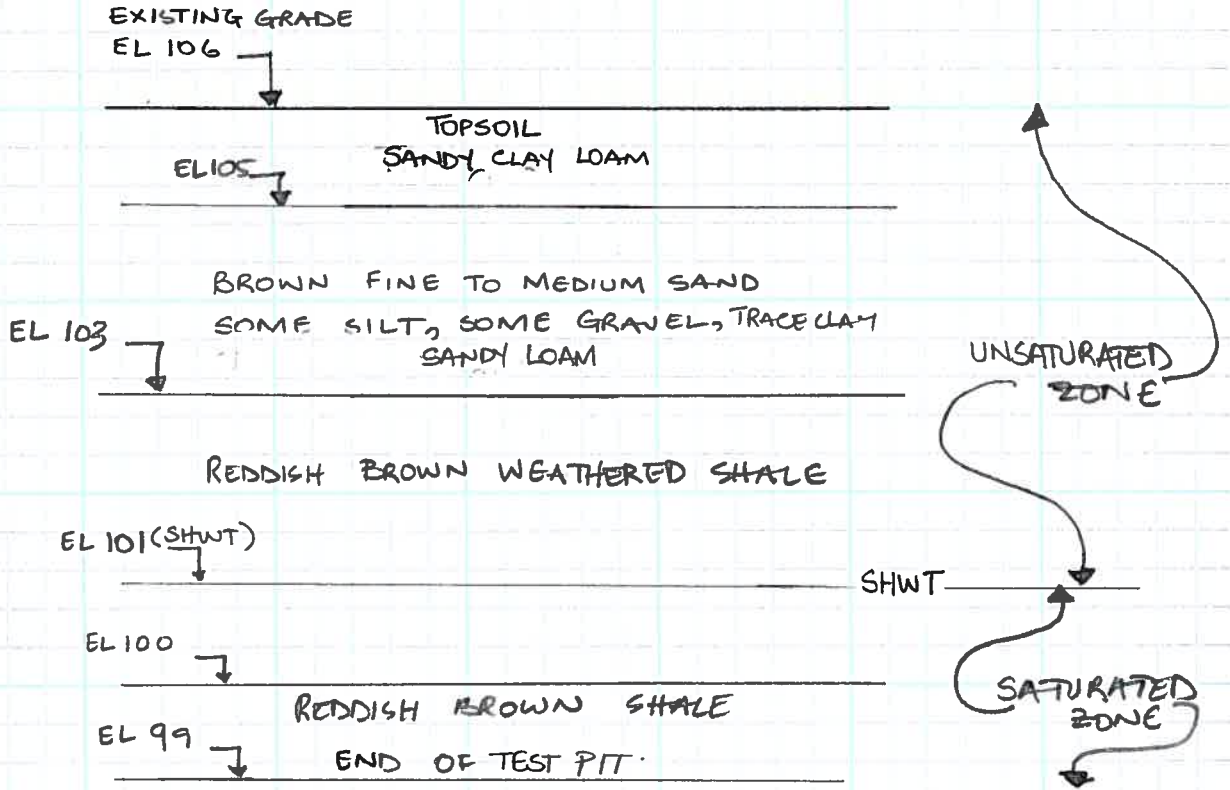 EXISTING GRADE
EL 106
TOPSOIL
SANDY CLAY LOAM
EL 105
BROWN FINE TO MEDIUM SAND
EL 103
SOME SILT, SOME GRAVEL, TRACE CLAY
SANDY LOAM
UNSATURATED
ZONE
REDDISH BROWN WEATHERED SHALE
EL 101 (SHWT)
SHWT
EL 100
REDDISH BROWN SHALE
SATURATED
ZONE
EL 99
END OF TEST PIT.